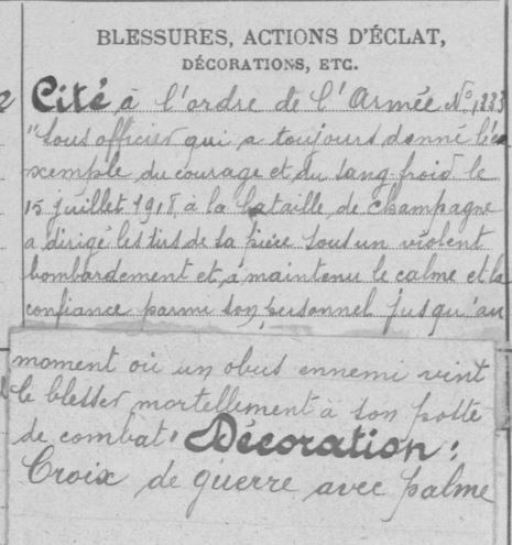 BLESSURES, ACTIONS D'ÉCLAT,
DÉCORATIONS, ETC.
Cité à l'ordre de l'Armée N° 1333
"Sous officier qui a toujours donné l'e
xemple du courage et du sang froid le
15 juillet 1918 à la bataille de Champagne
a dirigé les tirs de sa pièce sous un violent
bombardement et a maintenu le calme et la
confiance parmi son personnel jusqu'au
moment où un obus ennemi vint
le blesser mortellement à son poste
de combat" Décoration :
Croix de guerre avec palme